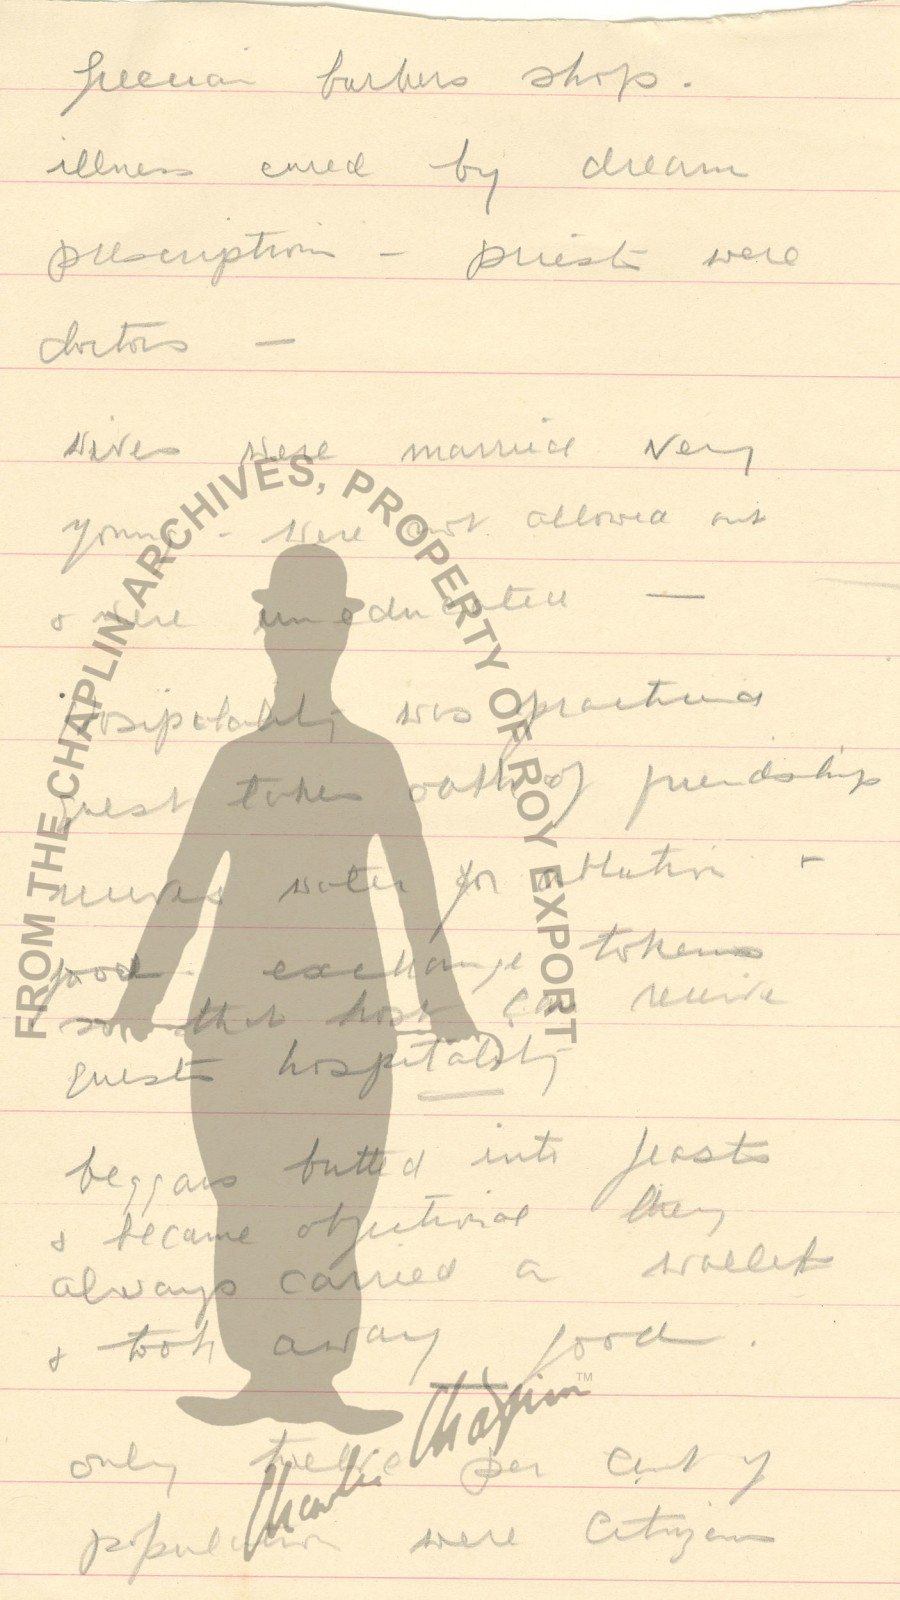 Grecian barbers shop.
illness cured by dream
prescription – priests were
doctors –
wives were married very
young - were not allowed out
& were uneducated —
hosipitality was practiced
guest takes oath of friendship
receives water for ablution &
food - exchange tokens
so that host can receive
guests hospitality
beggars butted into feasts
& became objectional they
always carried a wallet
& took away food.
only twelve per cent of
population were citizens
FROM THE CHAPLIN ARCHIVES, PROPERTY OF ROY EXPORT
Charlie Chaplin TM